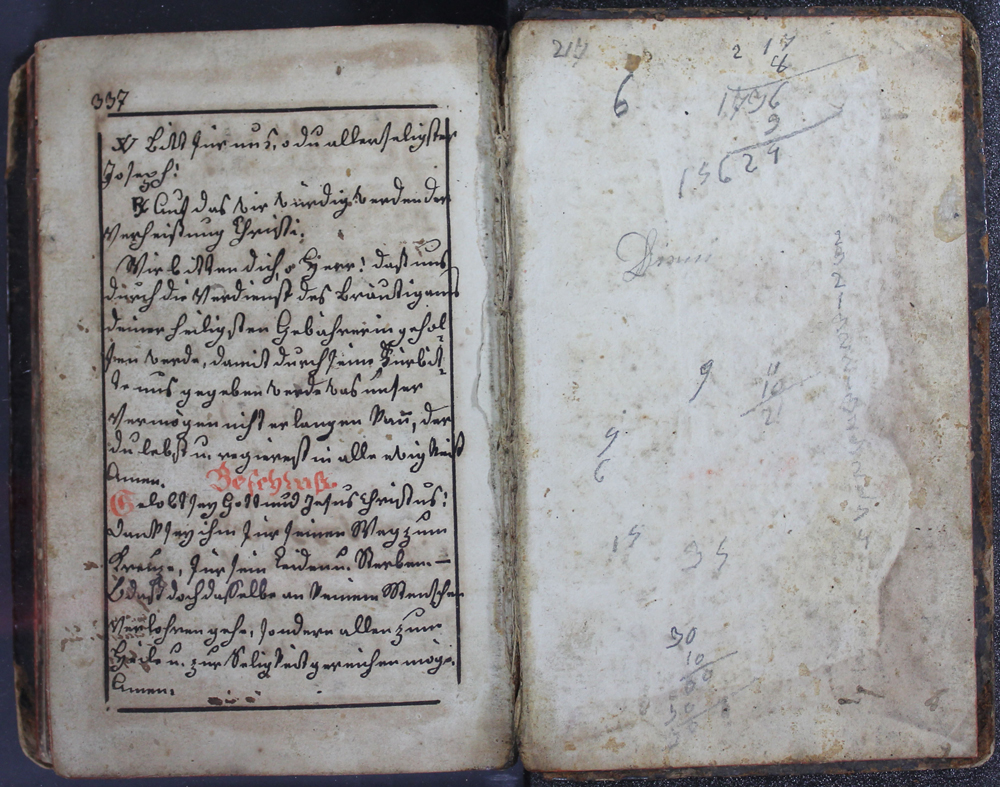 337
℣ Bitt für uns, o du allerseligster
Joseph!
℟ Auf das wir würdig werden der
Verheißung Christi.
Wir bitten dich, o Herr! daß uns
durch die Verdienst des Bräutigams
deiner heiligsten Gebährerin gehol-
fen werde, damit durch seine Fürbit-
te uns gegeben werde was unser
Vermögen nicht erlangen kañ, der
du lebst u. regierest in alle ewigkeit
Amen.
Beschluß
Gelobt sey Gott und Jesus Christus!
dank sey ihm für seinen Weg zum
Kreuze, für sein Leiden u. Sterben
daß doch dasselbe an keinem Menschen
Verlohren gehe, sondern allen zum
Heile u. zur Seligkeit gereichen möge.
Amen.
217
6
2 17
9
15624
9
11
10
21
9
6
15
35
30
10